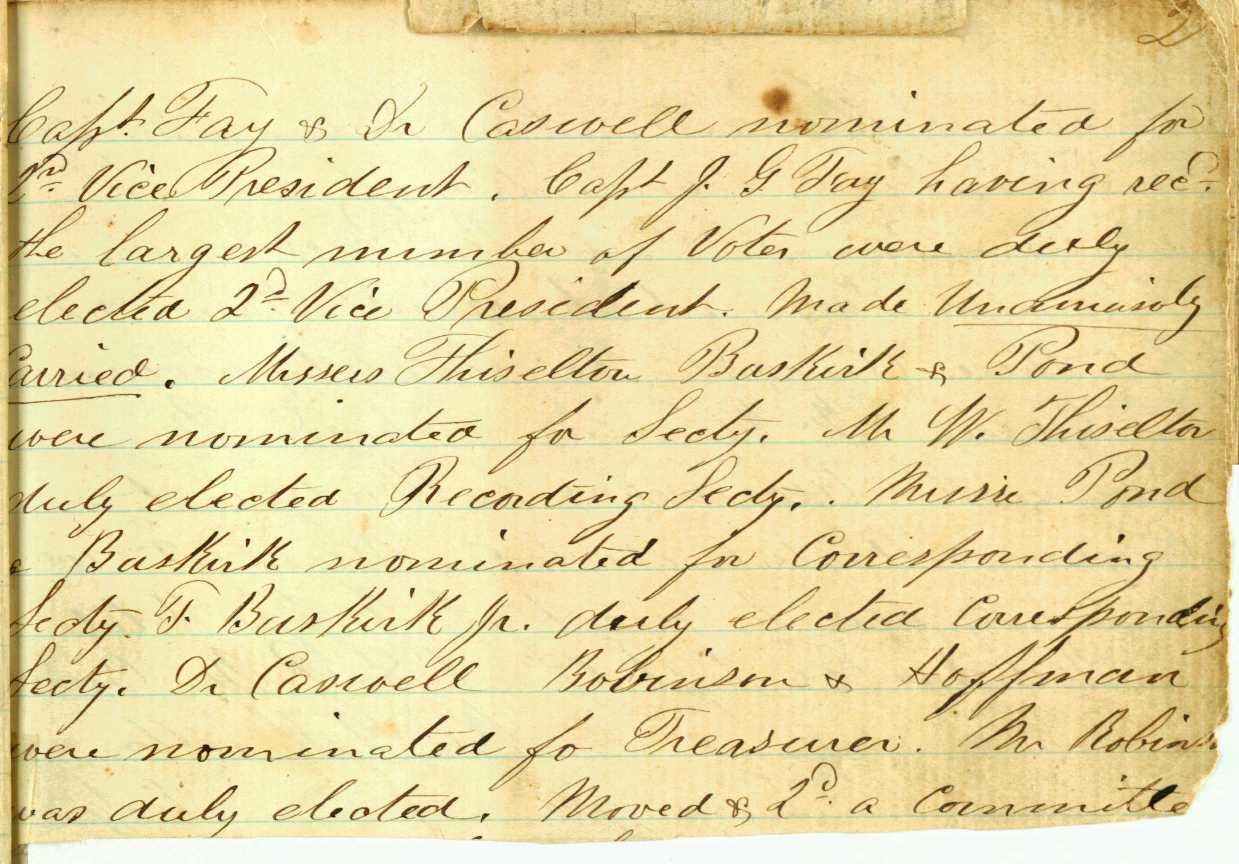 2
Capt. Fay & Dr Caswell nominated for
2nd. Vice President. Capt J. G Fay having recd.
the largest number of Votes were duly
elected 2d Vice President. Made Unamiously
Carried. Missers Thiselton Baskirk & Pond
were nominated for Secty. Mr W. Thiselton
duly elected Recording Secty.. Pond
& Baskirk nominated for Corresponding
Secty. F. Baskirk Jr. duly elected Corresponding
Secty. Dr Caswell Robinson & Hoffman
were nominated fo Treasurer. Mr Robins
was duly elected. Moved & 2d. a Committe